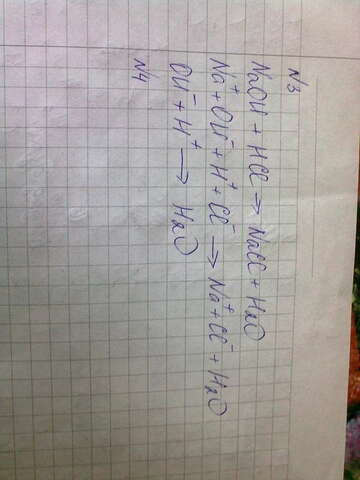 №3
NaOH + HCl → NaCl + H2O
Na⁺ + OH⁻ + H⁺ + Cl⁻ → Na⁺ + Cl⁻ + H2O
OH⁻ + H⁺ → H2O
№4